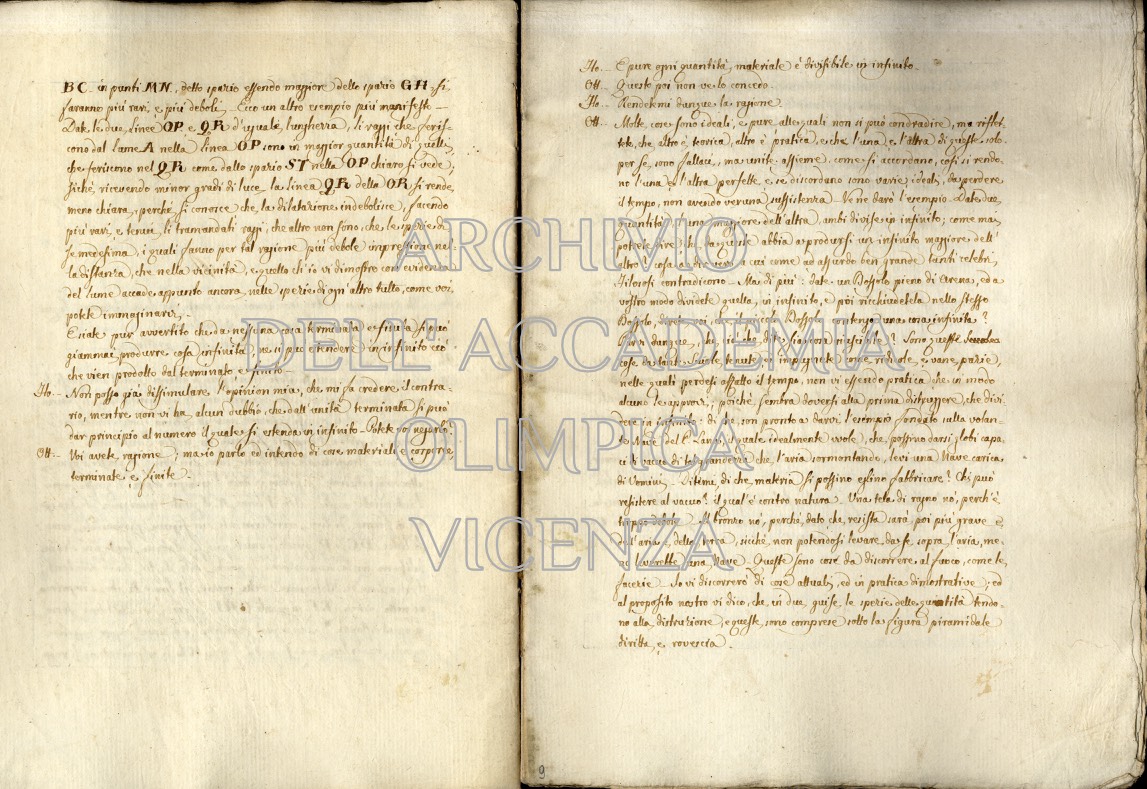 BC in punti MN, dello spazio essendo maggiore dello spazio GH, si
faranno più rari e più deboli. Ecco un altro esempio più manifesto.
Date le due linee OP e QR d'uguale lunghezza, li raggi che feris-
cono dal lume A nella linea OP sono in maggior quantità di quelli
che feriscono nel QR come dallo spazio ST nella OP chiaro si vede,
sichè ricevendo minor gradi di luce la linea QR della OP si rende
meno chiara, perchè si conosce che la dilatazione indebolisce, facendo
più rari, e tenui li tramandati raggi, che altro non sono, che le spezie di
se medesima, i quali fanno per tal ragione più debole impressione nel-
la distanza, che nella vicinità, e quello ch'io vi dimostro con evidenza
del lume accade appunto ancora nelle spezie di ogn'altro tutto, come voi
potete immaginarvi.
E siate pur avvertito che da nessuna cosa terminata e finita si può
giammai produrre cosa infinita, ne si può estendere in infinito ciò
che vien prodotto dal terminato, e finito.
Flo. Non posso già dissimulare l'opinion mia, che mi fa credere il contra-
rio, mentre non vi ha alcun dubbio che dall'unità terminata si può
dar principio al numero il quale si estenda in infinito. Potete voi negarlo?
Ott. Voi avete ragione; ma io parlo ed intendo di cose materiali e corporee
terminate, e finite.
Flo. E pure ogni quantità materiale è divisibile in infinito.
Ott. Questo poi non ve lo concedo.
Flo. Rendetemi dunque la ragione.
Ott. Molte cose sono ideali, e pure alle quali non si può contradire, ma riflet-
tete, che altro è teorica, altro è pratica, e che l'una e l'altra di queste solo
per se, sono fallaci, ma unite assieme, come si accordano, così si rendo-
no l'una, e l'altra perfette, e se discordano sono varie ideali, da perdere
il tempo, non avendo veruna sussistenza. Ve ne darò l'esempio. Date due
quantità, l'una maggiore dell'altra, ambi divise in infinito; come mai
potete dire che da queste abbia a prodursi un infinito maggiore dell'
altro? cosa a cui come ad assurdo ben grande tanti celebri
Filosofi contradicono. Ma di più: date un Bossolo pieno di arena, ed a
vostro modo dividete quella in infinito, e poi richiudetela nello stesso
Bossolo, direte voi, che il picciol Bossolo contenga una cosa infinita?
dunque, che ciò che dite sia cosa Sono queste
cose da tante Scuole tenute, ed impugnate cose ridicole, e vane pazzie,
nelle quali perdesi affatto il tempo, non vi essendo pratica che in modo
alcuno le approvi, poichè sembra doversi alla prima distruggere, che divi-
dere in infinito; di che son pronto a darvi l'esempio fondato sulla volan-
te Nave del P. Lana, il quale idealmente vuole, che possino darsi globi capa-
ci di vacuo di tal grandezza che l'aria sormontando, levi una Nave carica
di Uomini. Ditemi, di che materia si possino essi fabbricare? Chi può
resistere al vacuo? il qual'è contro natura. Una tela di ragno no, perch'è
troppo debole. Il bronzo no, perchè, dato che resista sarà poi più grave e
dell'aria e della forza, sichè non potendosi levare da se sopra l'aria, me-
no leverebbe una Nave. Queste sono cose da discorrere al fuoco, come le
facezie. Io vi discorrerò di cose attuali, ed in pratica dimostrative; ed
al proposito nostro vi dico, che in due guise le spezie delle quantità tendo-
no alla distruzione, e queste sono comprese sotto la figura piramidale
diritta, e rovescia.
9
ARCHIVIO
DELL'ACCADEMIA
OLIMPICA
VICENZA